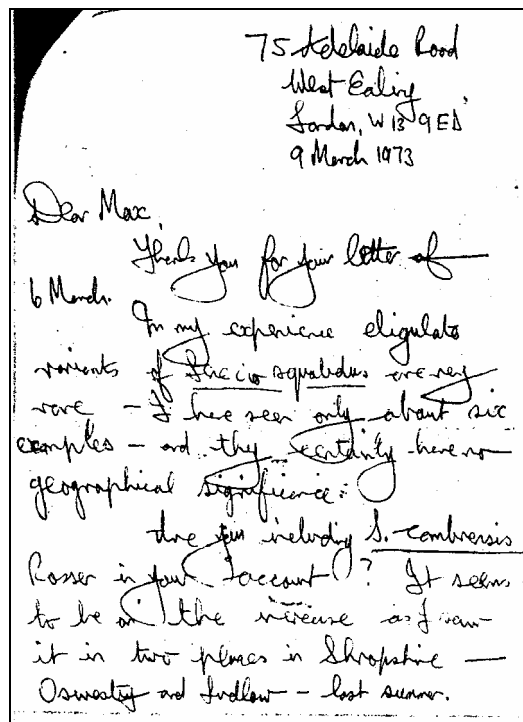 75 Adelaide Road
West Ealing
London, W13 9ED,
9 March 1973
Dear Max,
Thank you for your letter of
6 March.
In my experience eligulate
variants of Senecio squalidus are very
rare - I have seen only about six
examples - and they certainly have no
geographical significance.
Are you including S. cambrensis
Rosser in your account? It seems
to be on the increase as I saw
it in two places in Shropshire —
Oswestry and Ludlow - last summer.